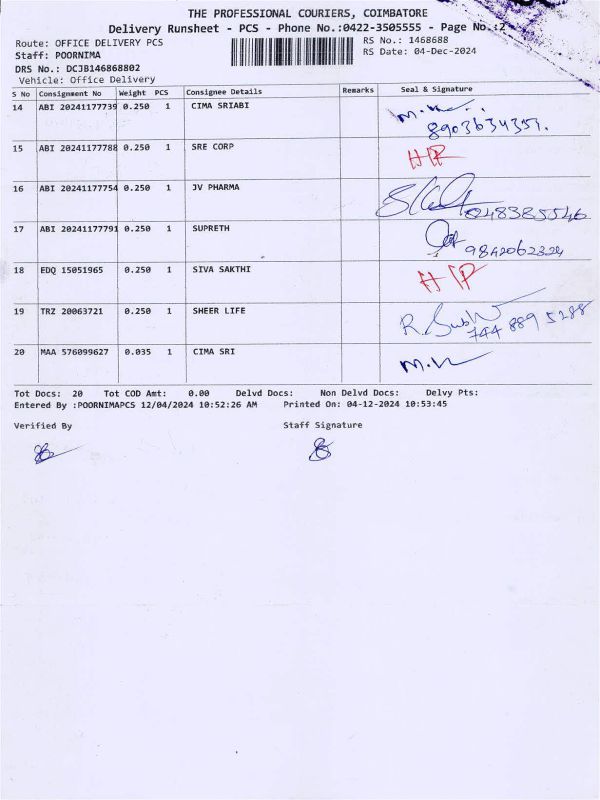 THE PROFESSIONAL COURIERS, COIMBATORE
Delivery Runsheet - PCS - Phone No.:0422-3505555 - Page No.:2
Route: OFFICE DELIVERY PCS
RS No.: 1468688
Staff: POORNIMA
RS Date: 04-Dec-2024
DRS No.: DCJB146868802
Vehicle: Office Delivery
S No Consignment No Weight PCS Consignee Details Remarks Seal & Signature
14 ABI 20241177739 0.250 1 CIMA SRIABI
8903634351.
15 ABI 20241177788 0.250 1 SRE CORP
16 ABI 20241177754 0.250 1 JV PHARMA
17 ABI 20241177791 0.250 1 SUPRETH
18 EDQ 15051965 0.250 1 SIVA SAKTHI
19 TRZ 20063721 0.250 1 SHEER LIFE
744 889 5288
20 MAA 576099627 0.035 1 CIMA SRI
Tot Docs: 20 Tot COD Amt: 0.00 Delvd Docs: Non Delvd Docs: Delvy Pts:
Entered By :POORNIMAPCS 12/04/2024 10:52:26 AM Printed On: 04-12-2024 10:53:45
Verified By Staff Signature